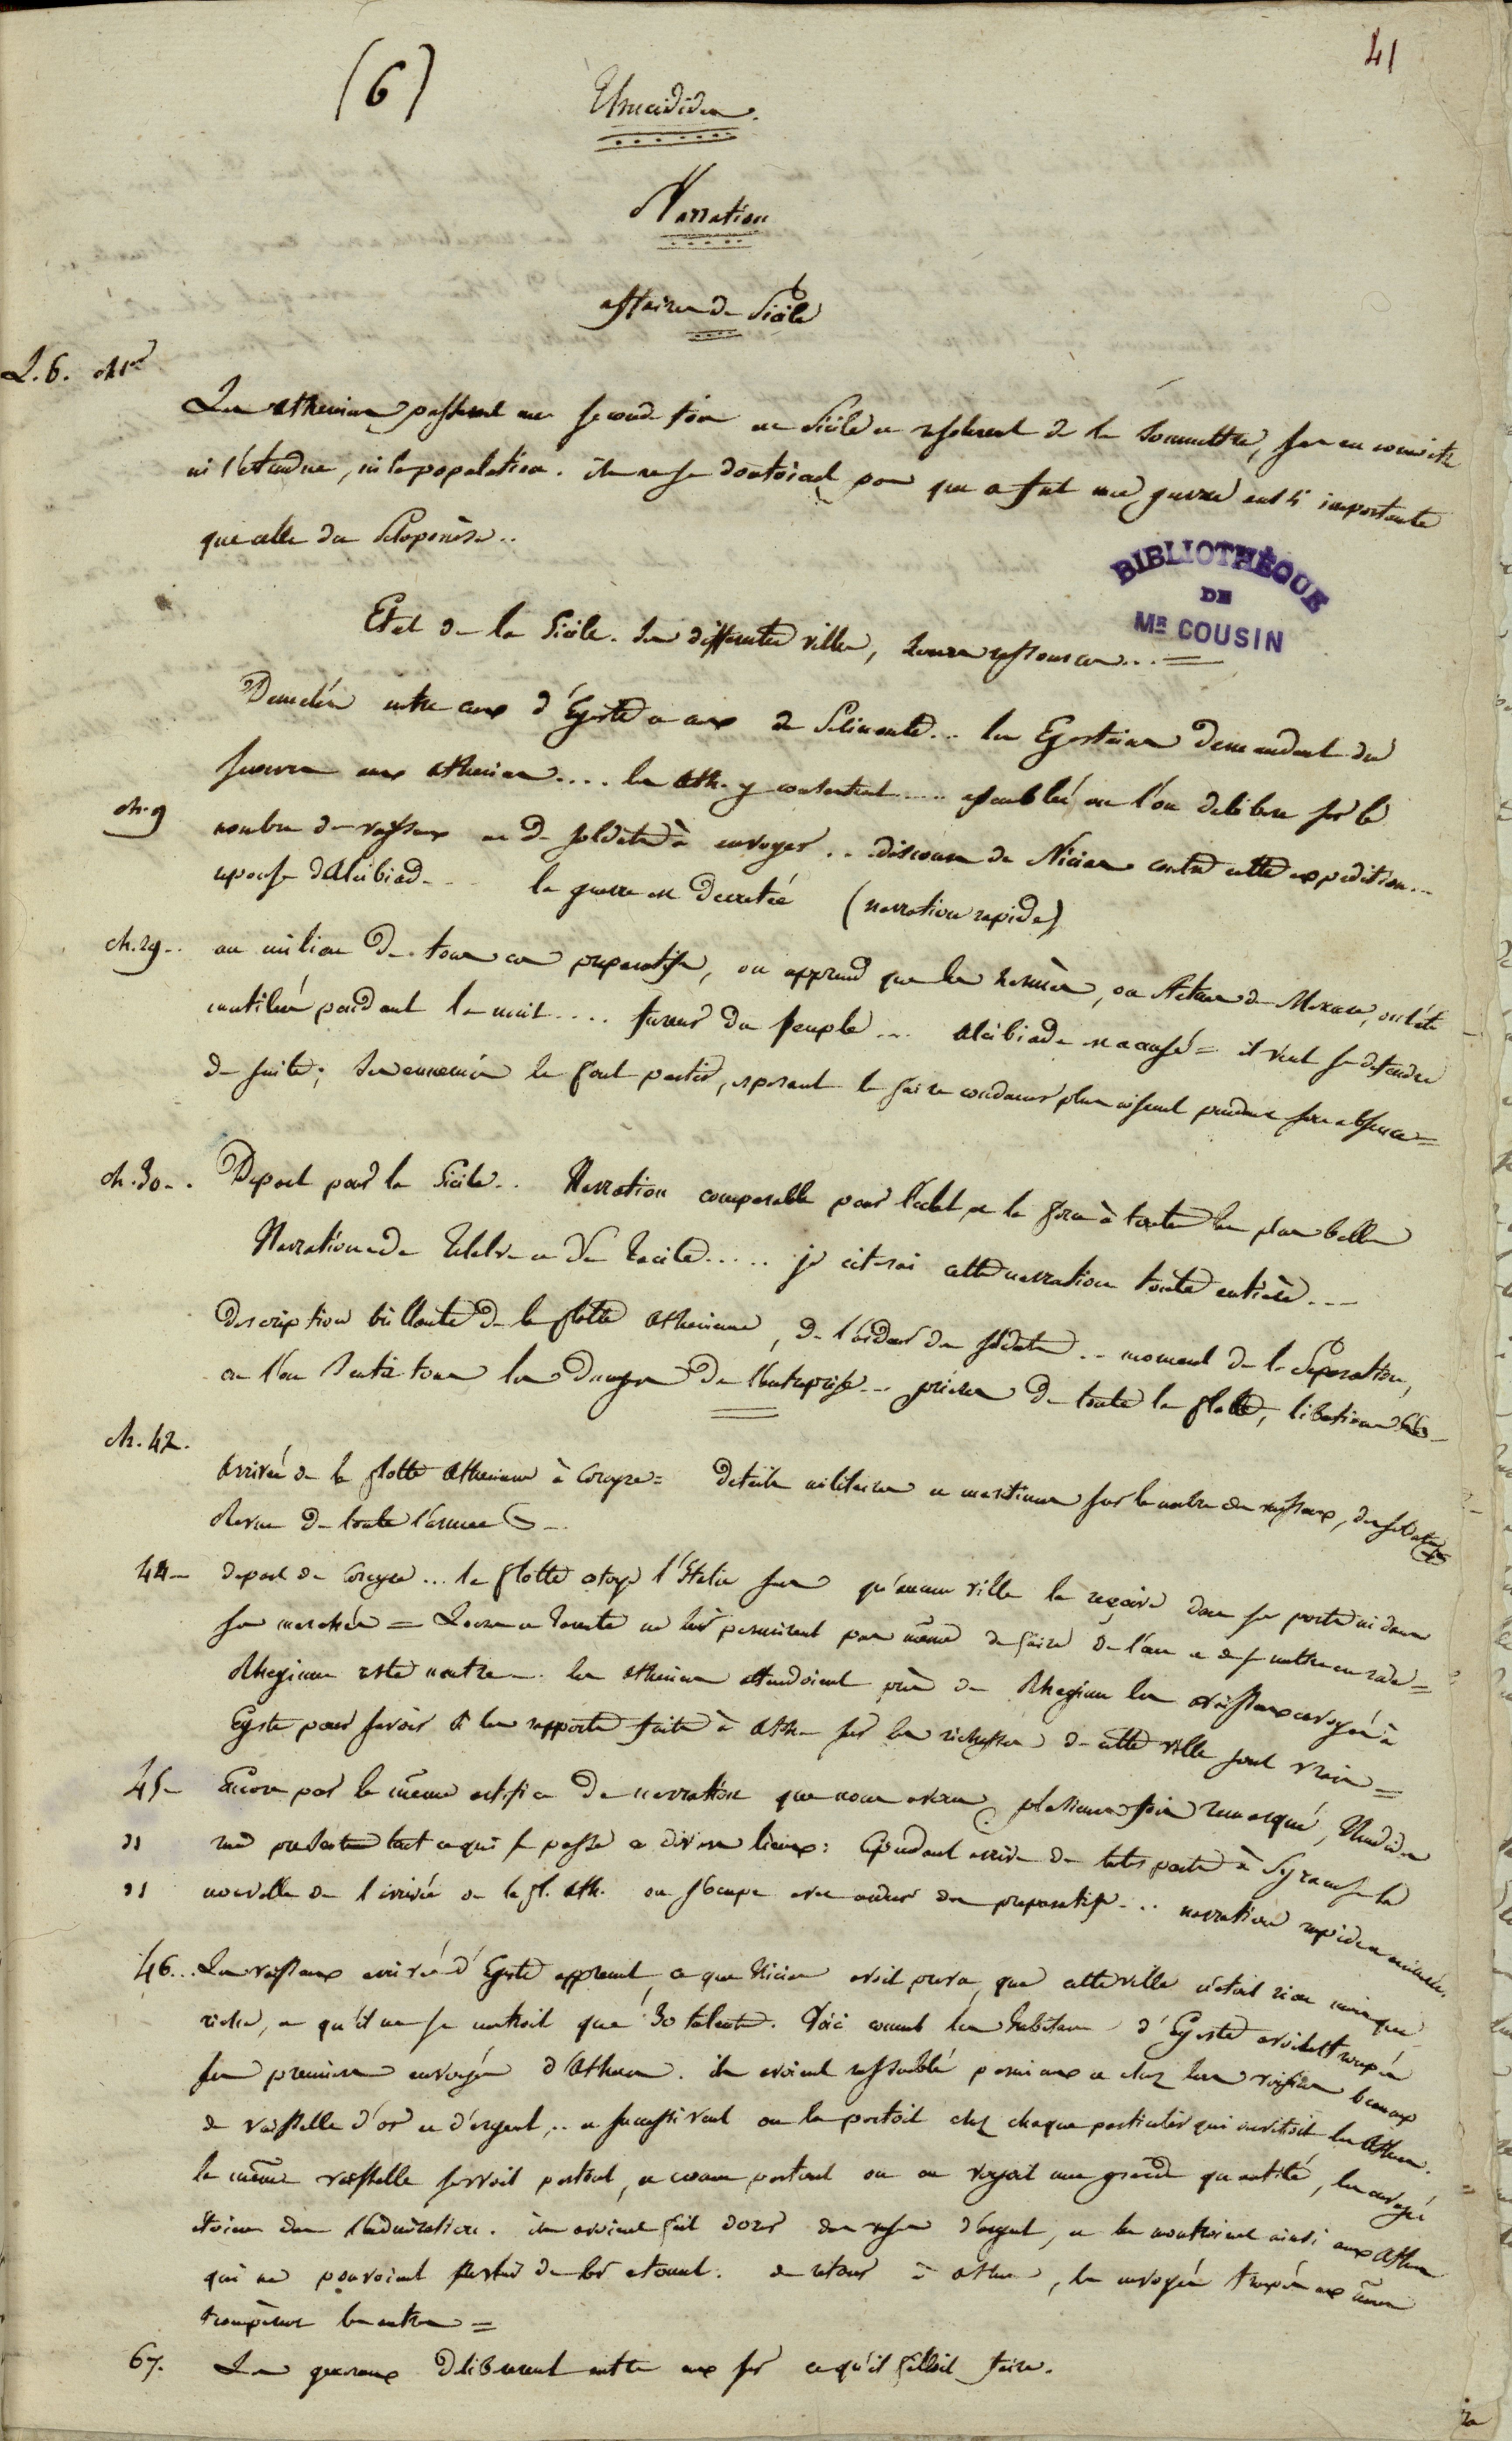 41
(6)
Thucidides.
Narration
affaires de Sicile
L. 6. ch 1er
Les atheniens passerent une seconde fois en Sicile et resolurent de la soumettre, sans en connoitre
ni l'étendue, ni la population. ils ne se doutoient pas que ce fut une guerre aussi importante
que celle du Peloponèse..
BIBLIOTHÈQUE
DE
MR COUSIN
Etat de la Sicile. Ses differentes villes, leurs ressources... =
Demelés entre ceux d'Egeste et ceux de Selinonte... les Egestains demandent du
secours aux atheniens.... les Ath. y consentent.... assemblée ou l'on delibere sur le
ch. 9 nombre de vaisseaux et de soldats à envoyer... discours de Nicias contre cette expedition...
reponse d'Alcibiade... la guerre est decretée (narration rapide)
ch. 29.. au milieu de tous ces preparatifs, on apprend que les hermès, ou statues de Mercure, ont été
mutilés pendant la nuit.... fureur du peuple... Alcibiade est accusé = il veut se defendre
de suite; ses ennemis le font partir, esperant le faire condamner plus aisement pendant son absence =
ch. 30.. Depart pour la Sicile.. Narration comparable pour l'eclat et la force à toutes les plus belles
Narrations de et de Tacite..... je citerai cette narration toute entière...
description brillante de la flotte Athenienne, de l'ardeur des soldats... moment de la Separation,
ou l'on sentit tous les dangers de l'entreprise... prières de toute la flotte, libations
ch. 42.
Arrivée de la flotte Athenienne à Corcyre = details militaires et maritimes sur le nombre des vaisseaux, des soldats
Revue de toute l'armée
44- depart de Corcyre... la flotte cotoye l'Italie sans qu'aucune ville la reçoive dans ses portes ni dans
ses marchés = Locres et Tarente ne leur permirent pas même de faire de l'eau et de se mettre en rade =
Rhegium reste neutre... les atheniens attendoient près de Rhegium les vaisseaux envoyés à
Egeste pour savoir si les rapports faits à Ath. sur les richesses de cette ville sont vrais =
45- Encore par le même artifice de narration que nous avons plusieurs fois remarqué, Thucidide
" nous presente tout ce qui se passe en divers lieux: Cependant arrive de toutes parts à Syracuse la
" nouvelle de l'arrivée de la fl. Ath. on s'occupe avec ardeur des preparatifs... narration rapide et animée.
46... Les vaisseaux arrivés d'Egeste apprennent, ce que Nicias avoit prevu, que cette ville n'étoit rien moins que
riche, et qu'il ne se montroit que 30 talents. Voici comment les habitans d'Egeste avoient trompés
les premiers envoyés d'Athenes. ils avoient rassemblé parmi eux et chez leurs voisins beaucoup
de vaisselle d'or et d'argent,.. et successivement on la portoit chez chaque particulier qui invitoit les Athen.
la même vaisselle servoit partout, et comme partout on en voyoit une grande quantité, les envoyés
étoient dans l'admiration. ils avoient fait dorer des vases d'argent, et les montroient ainsi aux Athen
qui ne pouvoient revenir de leur etonnement. de retour à Athenes, les envoyés trompés eux mêmes
trompèrent les autres =
67. Les generaux deliberent entre eux sur ce qu'il falloit faire.